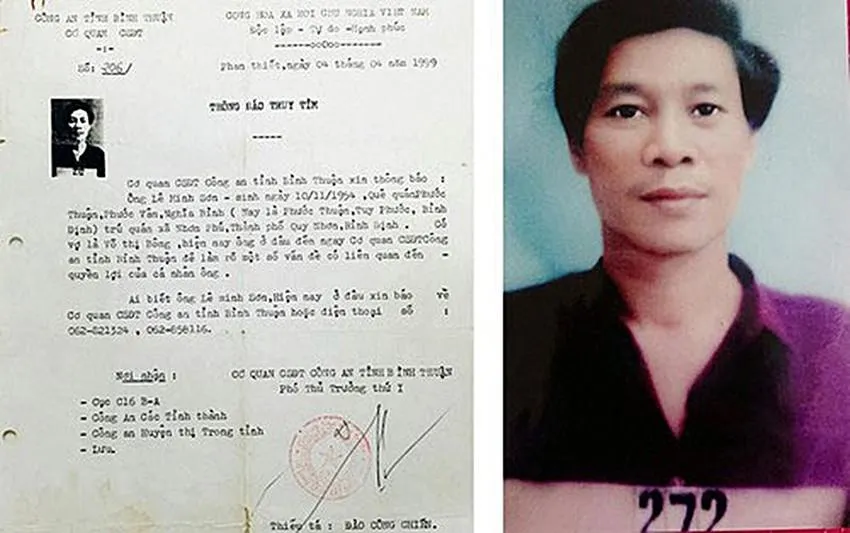 CÔNG AN TỈNH BÌNH THUẬN
CƠ QUAN CSĐT
Số: 206/
CỘNG HÒA XÃ HỘI CHỦ NGHĨA VIỆT NAM
Độc lập - Tự do - Hạnh phúc
-------ooOoo-------
Phan thiết, ngày 04 tháng 04 năm 1999
THÔNG BÁO TRUY TÌM
-----
Cơ quan CSĐT Công an tỉnh Bình Thuận xin thông báo :
Ông Lê Minh Sơn - sinh ngày 10/11/1954 ,Quê quánPhước
Thuận,Phước Vân,Nghĩa Bình ( Nay là Phước Thuận,Tuy Phước, Bình
Định) trú quán xã Nhơn Phú,Thành phố Quy Nhơn,Bình Định . Có
vợ là Võ thị Bông ,hiện nay ông ở đâu đến ngay Cơ quan CSĐTCông
an tỉnh Bình Thuận để làm rõ một số vấn đề có liên quan đến -
quyền lợi của cá nhân ông .
Ai biết ông Lê minh Sơn,Hiện nay ở đâu xin báo về
Cơ quan CSĐT Công an tỉnh Bình Thuận hoặc điện thoại số :
062-821324 , 062-858116.
Nơi nhận :
- Cục C16 B-A
- Công An Các Tỉnh thành
- Công an Huyện thị Trong tỉnh
- Lưu.
CƠ QUAN CSĐT CÔNG AN TỈNH BÌNH THUẬN
Phó Thủ Trưởng thứ I
Thiếu tá : ĐÀO CÔNG CHIẾN.
272